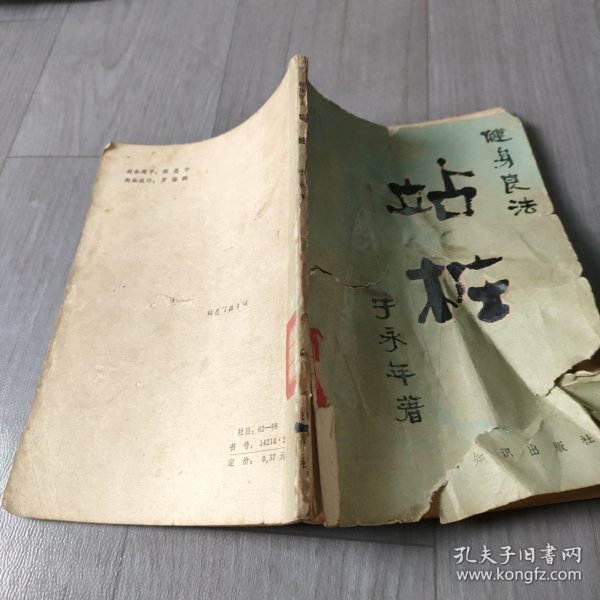 健身良法
站桩
于永年著
知识出版社
封面题字：张恩
封面设计：罗
社目：62—68
书号：14214·1
定价：0.37元
孔夫子旧书网
www.kongfz.com